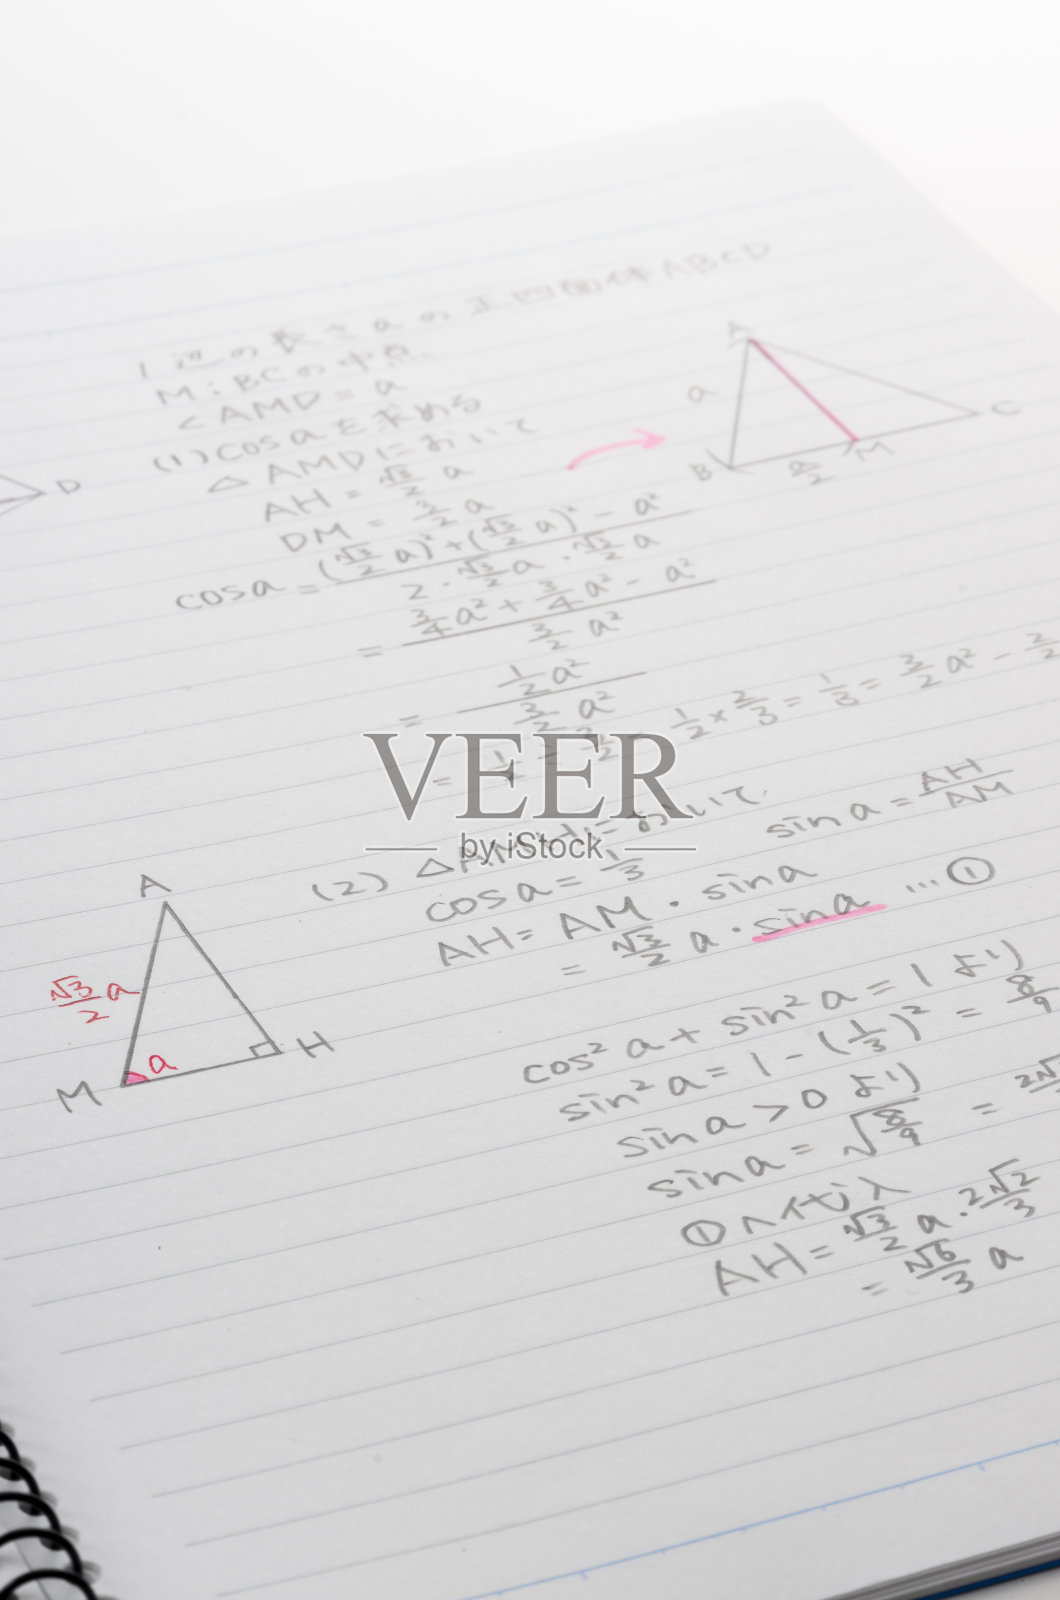 1辺の長さaの正四面体ABCD
M:BCの中点
<AMD=a
(1)cosaを求める
△AMDにおいて
AH=√3/2 a
DM=√3/2 a
cosa=((√3/2 a)²+(√3/2 a)²-a²)/(2・√3/2 a・√3/2 a)
=(3/4 a²+3/4 a²-a²)/(3/2 a²)
=(1/2 a²)/(3/2 a²)
1/2×2/3=1/3=3/2 a²-2/2
A
a
B
a/2
M
C
D
VEER
by iStock
(2)△AMHにおいて
sina=AH/AM
cosa=1/3
AH=AM・sina
=√3/2 a・sina …①
cos²a+sin²a=1より
sin²a=1-(1/3)²=8/9
sina>0より
sina=√(8/9)=2√
①へ代入
AH=√3/2 a・2√2/3
=√6/3 a
A
√3/2 a
a
M
H